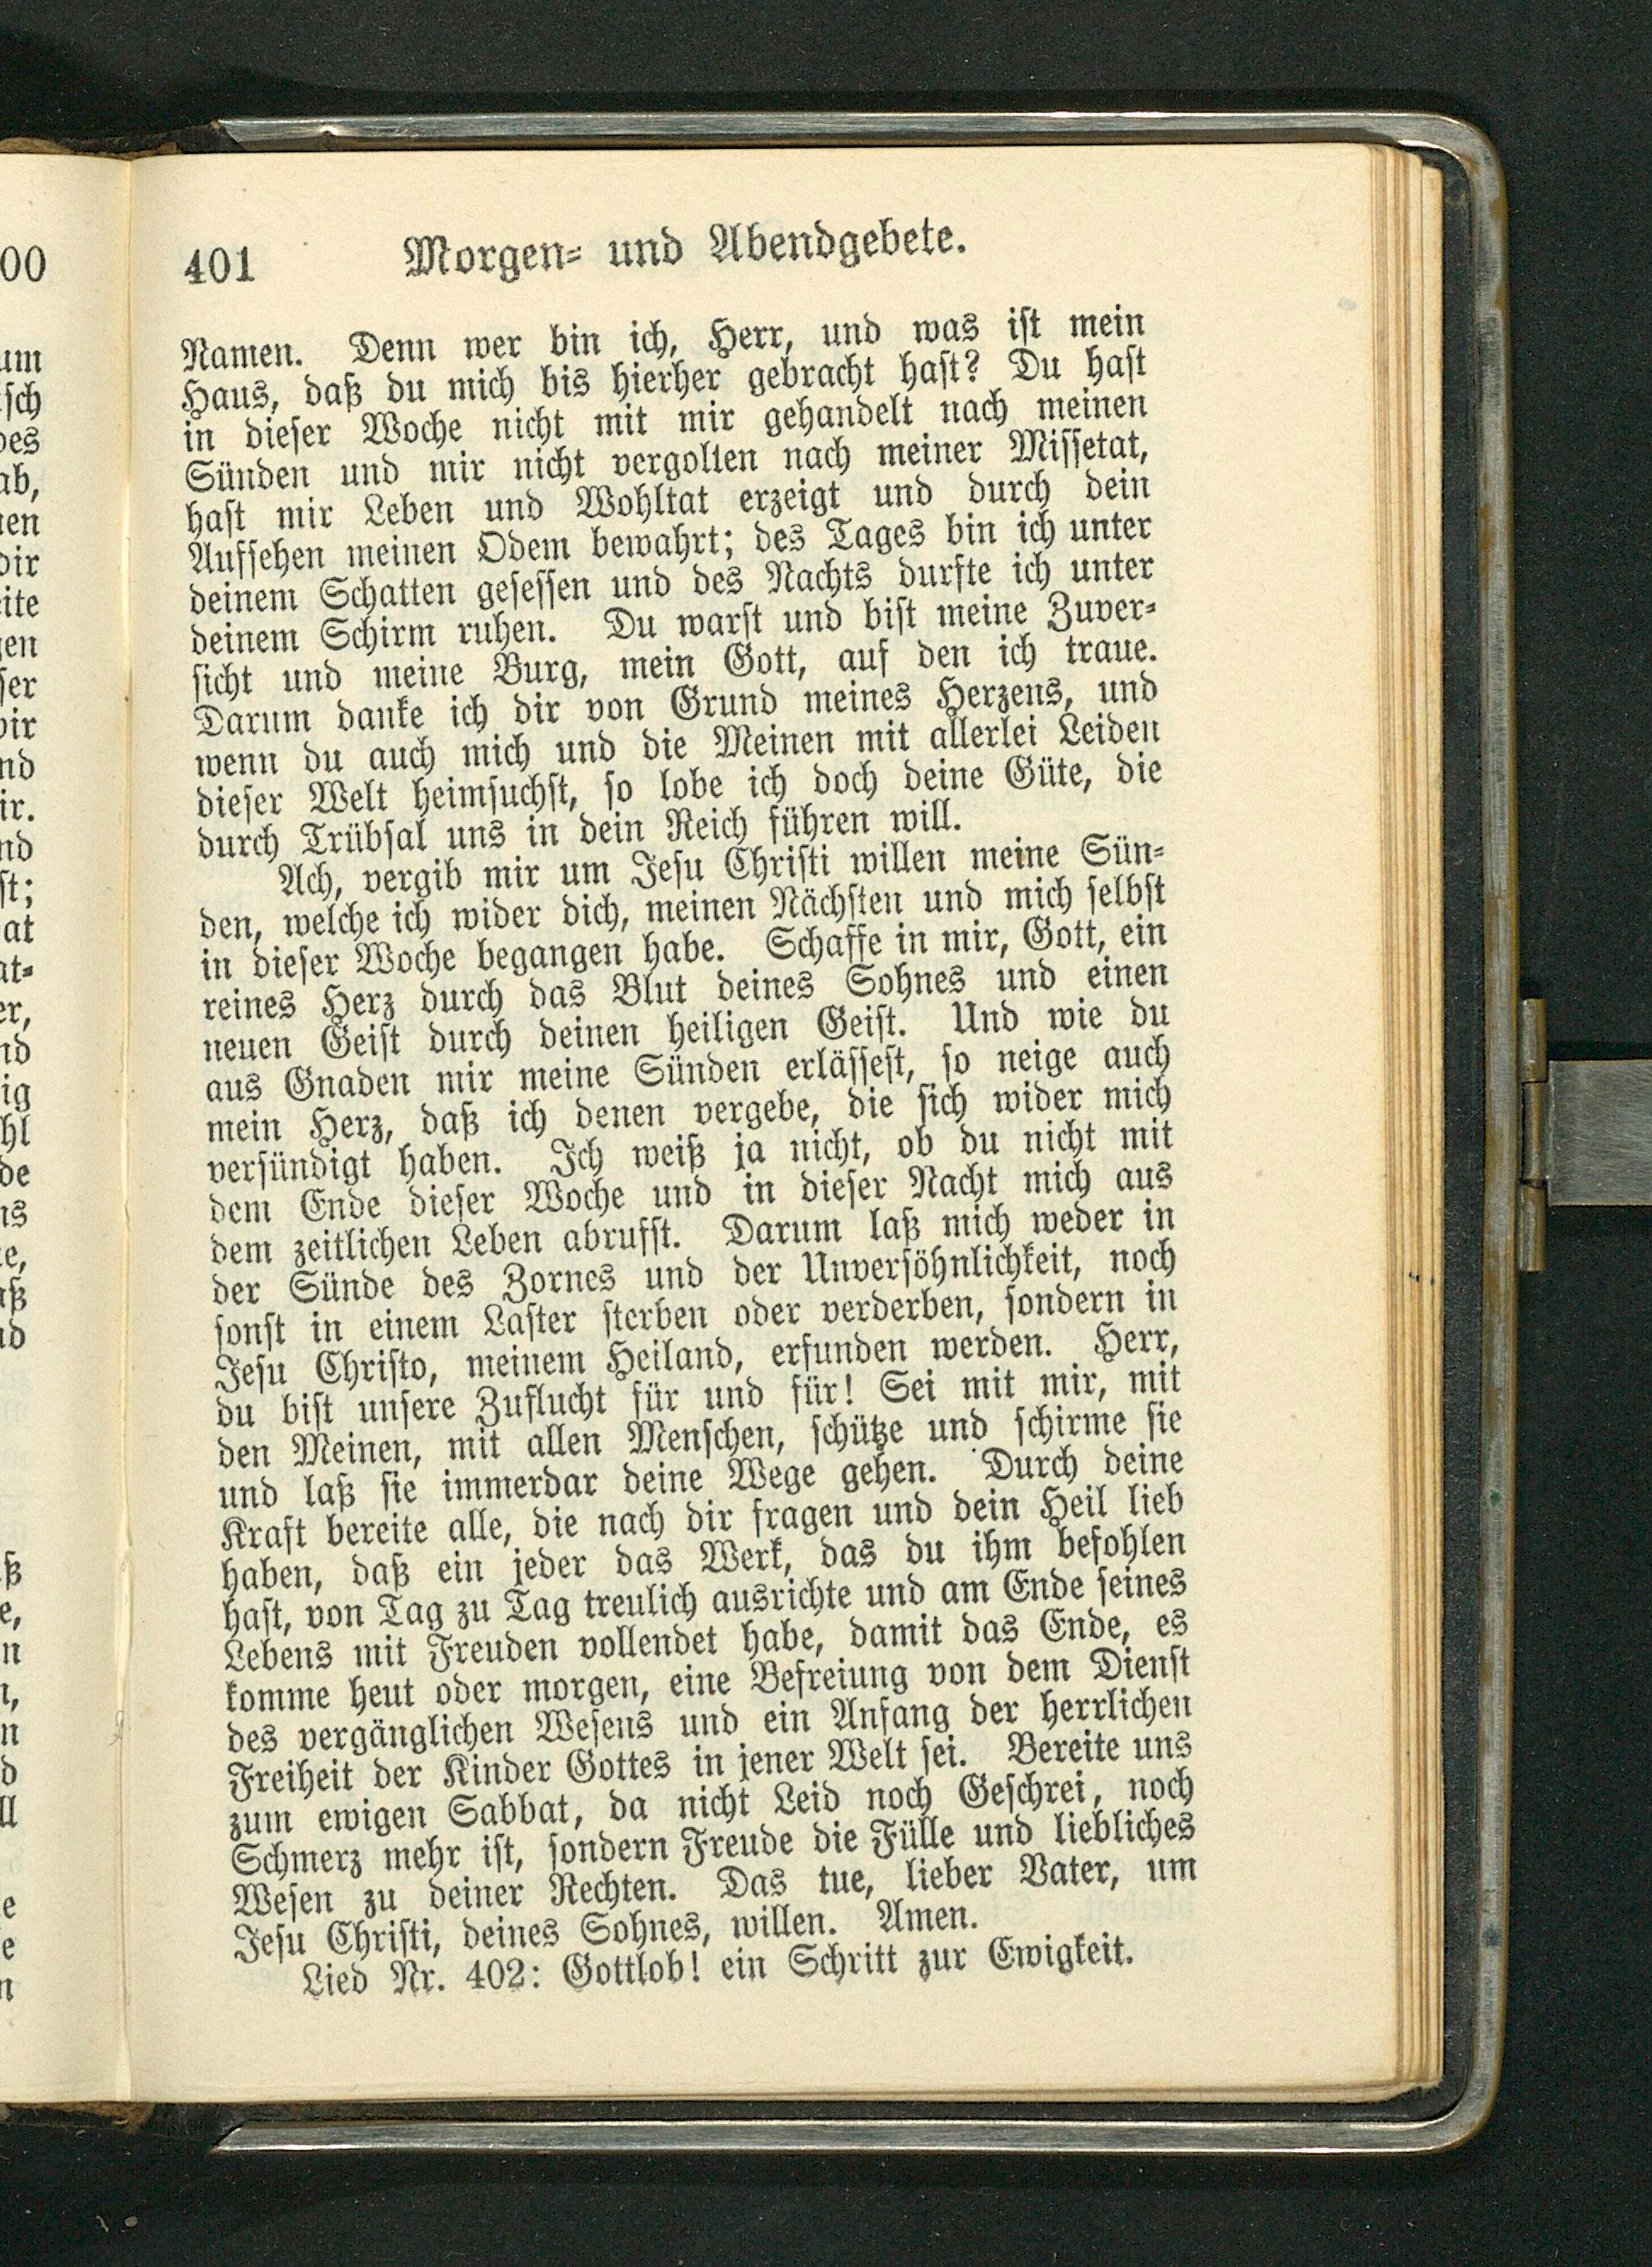 401 Morgen- und Abendgebete.
Namen. Denn wer bin ich, Herr, und was ist mein
Haus, daß du mich bis hierher gebracht hast? Du hast
in dieser Woche nicht mit mir gehandelt nach meinen
Sünden und mir nicht vergolten nach meiner Missetat,
hast mir Leben und Wohltat erzeigt und durch dein
Aufsehen meinen Odem bewahrt; des Tages bin ich unter
deinem Schatten gesessen und des Nachts durfte ich unter
deinem Schirm ruhen. Du warst und bist meine Zuver-
sicht und meine Burg, mein Gott, auf den ich traue.
Darum danke ich dir von Grund meines Herzens, und
wenn du auch mich und die Meinen mit allerlei Leiden
dieser Welt heimsuchst, so lobe ich doch deine Güte, die
durch Trübsal uns in dein Reich führen will.
Ach, vergib mir um Jesu Christi willen meine Sün-
den, welche ich wider dich, meinen Nächsten und mich selbst
in dieser Woche begangen habe. Schaffe in mir, Gott, ein
reines Herz durch das Blut deines Sohnes und einen
neuen Geist durch deinen heiligen Geist. Und wie du
aus Gnaden mir meine Sünden erlässest, so neige auch
mein Herz, daß ich denen vergebe, die sich wider mich
versündigt haben. Ich weiß ja nicht, ob du nicht mit
dem Ende dieser Woche und in dieser Nacht mich aus
dem zeitlichen Leben abrufst. Darum laß mich weder in
der Sünde des Zornes und der Unversöhnlichkeit, noch
sonst in einem Laster sterben oder verderben, sondern in
Jesu Christo, meinem Heiland, erfunden werden. Herr,
du bist unsere Zuflucht für und für! Sei mit mir, mit
den Meinen, mit allen Menschen, schütze und schirme sie
und laß sie immerdar deine Wege gehen. Durch deine
Kraft bereite alle, die nach dir fragen und dein Heil lieb
haben, daß ein jeder das Werk, das du ihm befohlen
hast, von Tag zu Tag treulich ausrichte und am Ende seines
Lebens mit Freuden vollendet habe, damit das Ende, es
komme heut oder morgen, eine Befreiung von dem Dienst
des vergänglichen Wesens und ein Anfang der herrlichen
Freiheit der Kinder Gottes in jener Welt sei. Bereite uns
zum ewigen Sabbat, da nicht Leid noch Geschrei, noch
Schmerz mehr ist, sondern Freude die Fülle und liebliches
Wesen zu deiner Rechten. Das tue, lieber Vater, um
Jesu Christi, deines Sohnes, willen. Amen.
Lied Nr. 402: Gottlob! ein Schritt zur Ewigkeit.